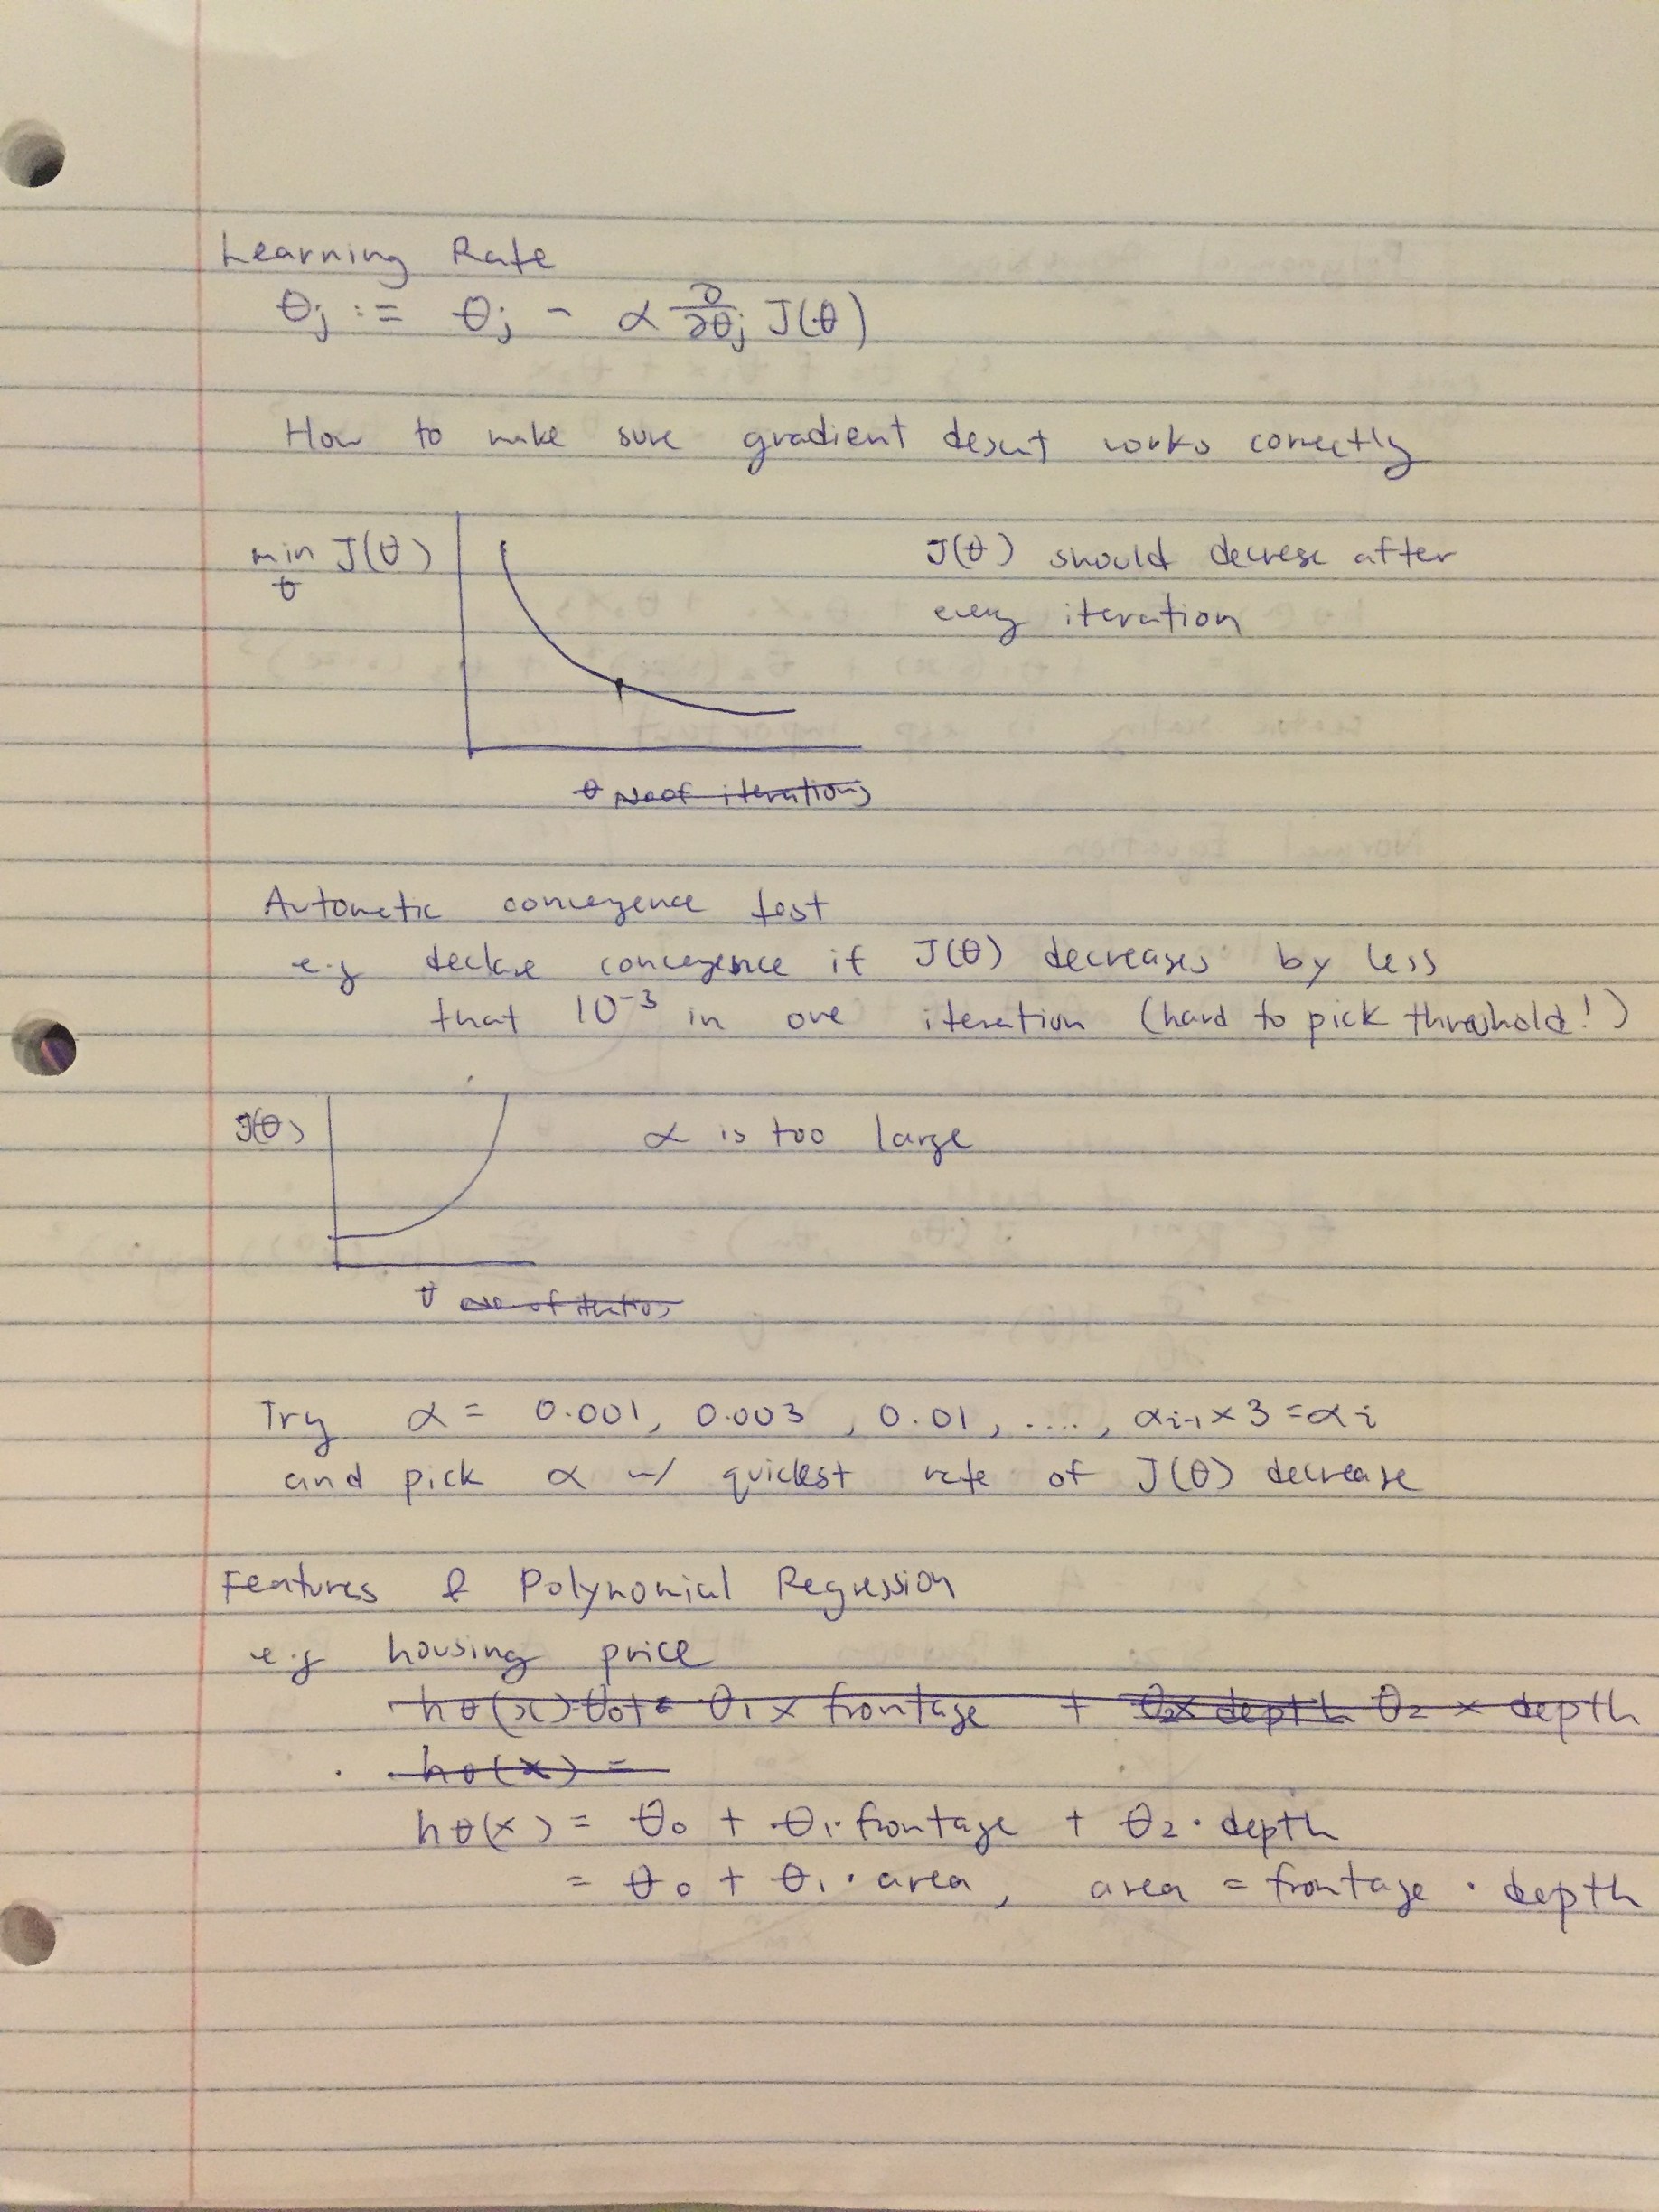 Learning Rate
θj := θj - α ∂/∂θj J(θ)
How to make sure gradient desent works correctly
min J(θ)
θ
J(θ) should decrese after
every iteration
θ No of iterations
Automatic convergence test
e.g declare convergence if J(θ) decreases by less
that 10⁻³ in one iteration (hard to pick threshold!)
J(θ)
α is too large
θ no of iterations
Try α = 0.001, 0.003, 0.01, ...., αi-1 × 3 = αi
and pick α w/ quickest rate of J(θ) decrease
Features & Polynomial Regression
e.g housing price
hθ(x) = θ0 + θ1 × frontage + θ2 × depth θ2 × depth
hθ(x) =
hθ(x) = θ0 + θ1 · frontage + θ2 · depth
= θ0 + θ1 · area, area = frontage · depth